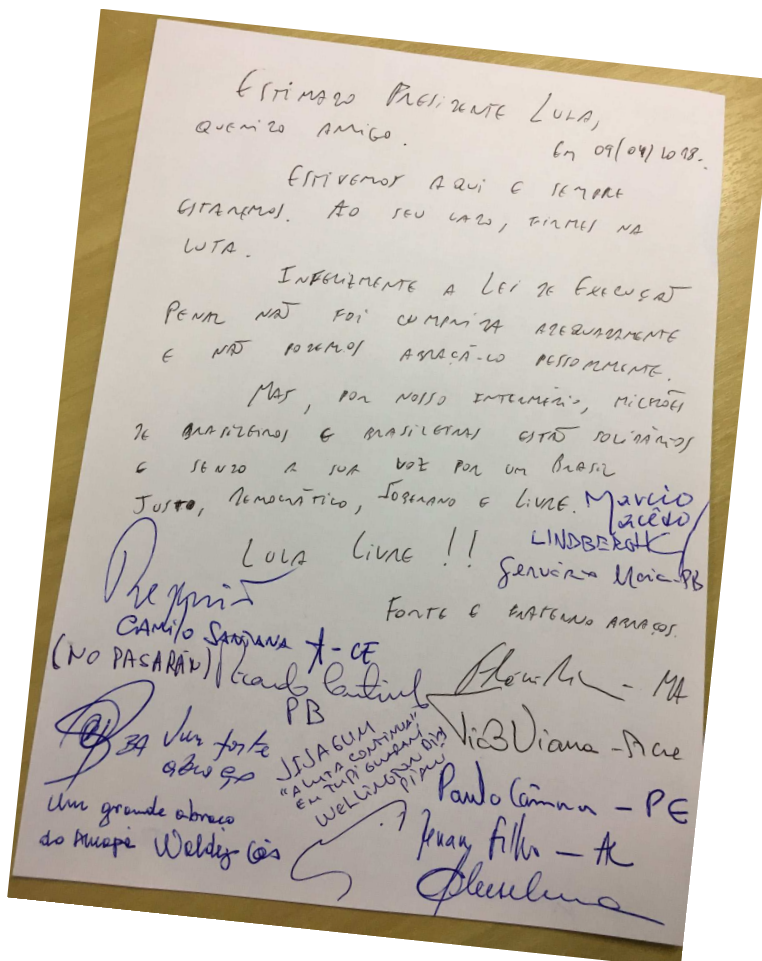 Estimado Presidente Lula,
querido amigo.
Em 09/04/2018.
Estivemos aqui e sempre
estaremos. Ao seu lado, firmes na
luta.
Infelizmente a Lei de Execução
Penal não foi cumprida adequadamente
e não podemos abraçá-lo pessoalmente.
Mas, por nosso intermédio, milhões
de brasileiros e brasileiras estão solidários
e sendo a sua voz por um Brasil
justo, democrático, soberano e livre.
Marcio
Macêdo
LINDBERGH
Lula Livre!!
Gervásio Maia-PB
Forte e fraterno abraços.
Requião
Camilo Santana - CE
(NO PASARÁN)
Ricardo Coutinho
PB
- MA
Viana - Acre
BA Um forte
abraço
JIJAGUM
"A LUTA CONTINUA"
EM TUPI GUARANI
WELLINGTON DIAS
PIAUÍ
Paulo Câmara - PE
Um grande abraço
do Amapá Waldez Góes
Renan Filho - AL